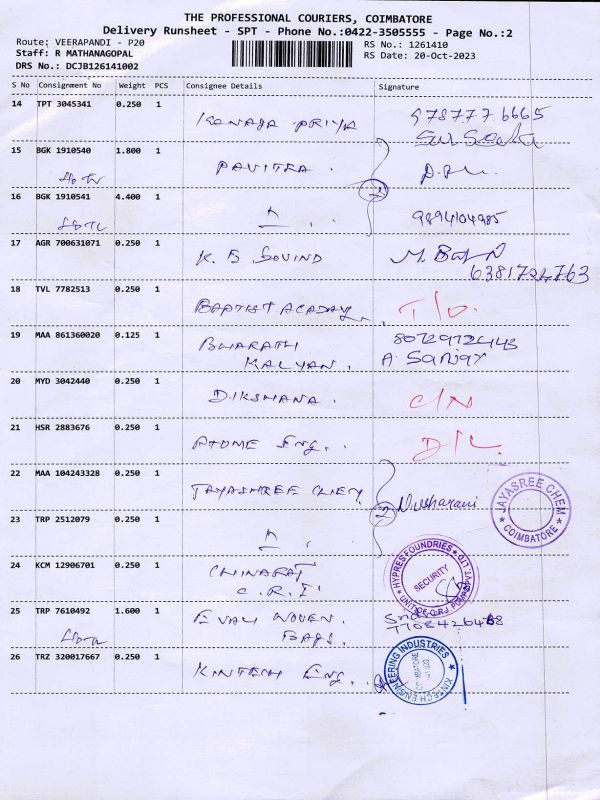 THE PROFESSIONAL COURIERS, COIMBATORE
Delivery Runsheet - SPT - Phone No.:0422-3505555 - Page No.:2
Route: VEERAPANDI - P20
RS No.: 1261410
Staff: R MATHANAGOPAL
RS Date: 20-Oct-2023
DRS No.: DCJB126141002
S No Consignment No Weight PCS Consignee Details Signature
14 TPT 3045341 0.250 1 9787776665
PRIYA
15 BGK 1910540 1.800 1 PAVITRA.
16 BGK 1910541 4.400 1 9894104985
17 AGR 700631071 0.250 1 K. B GOVIND
6381724763
18 TVL 7782513 0.250 1 BAPTIST ACADAY
19 MAA 861360020 0.125 1 BHARATHI
KALYAN. A. Sanjay
20 MYD 3042440 0.250 1 DIKSHANA. C/N
21 HSR 2883676 0.250 1 ATOME Eng. D/L
22 MAA 104243328 0.250 1 JAYASHREE CHEM
JAYASREE CHEM
COIMBATORE
23 TRP 2512079 0.250 1 2
24 KCM 12906701 0.250 1
C.R.I
HYPRES FOUNDRIES
SECURITY
25 TRP 7610492 1.600 1 WOVEN
BAGS.
26 TRZ 320017667 0.250 1 KINTECH Eng.
KINTECH ENGINEERING INDUSTRIES
COIMBATORE